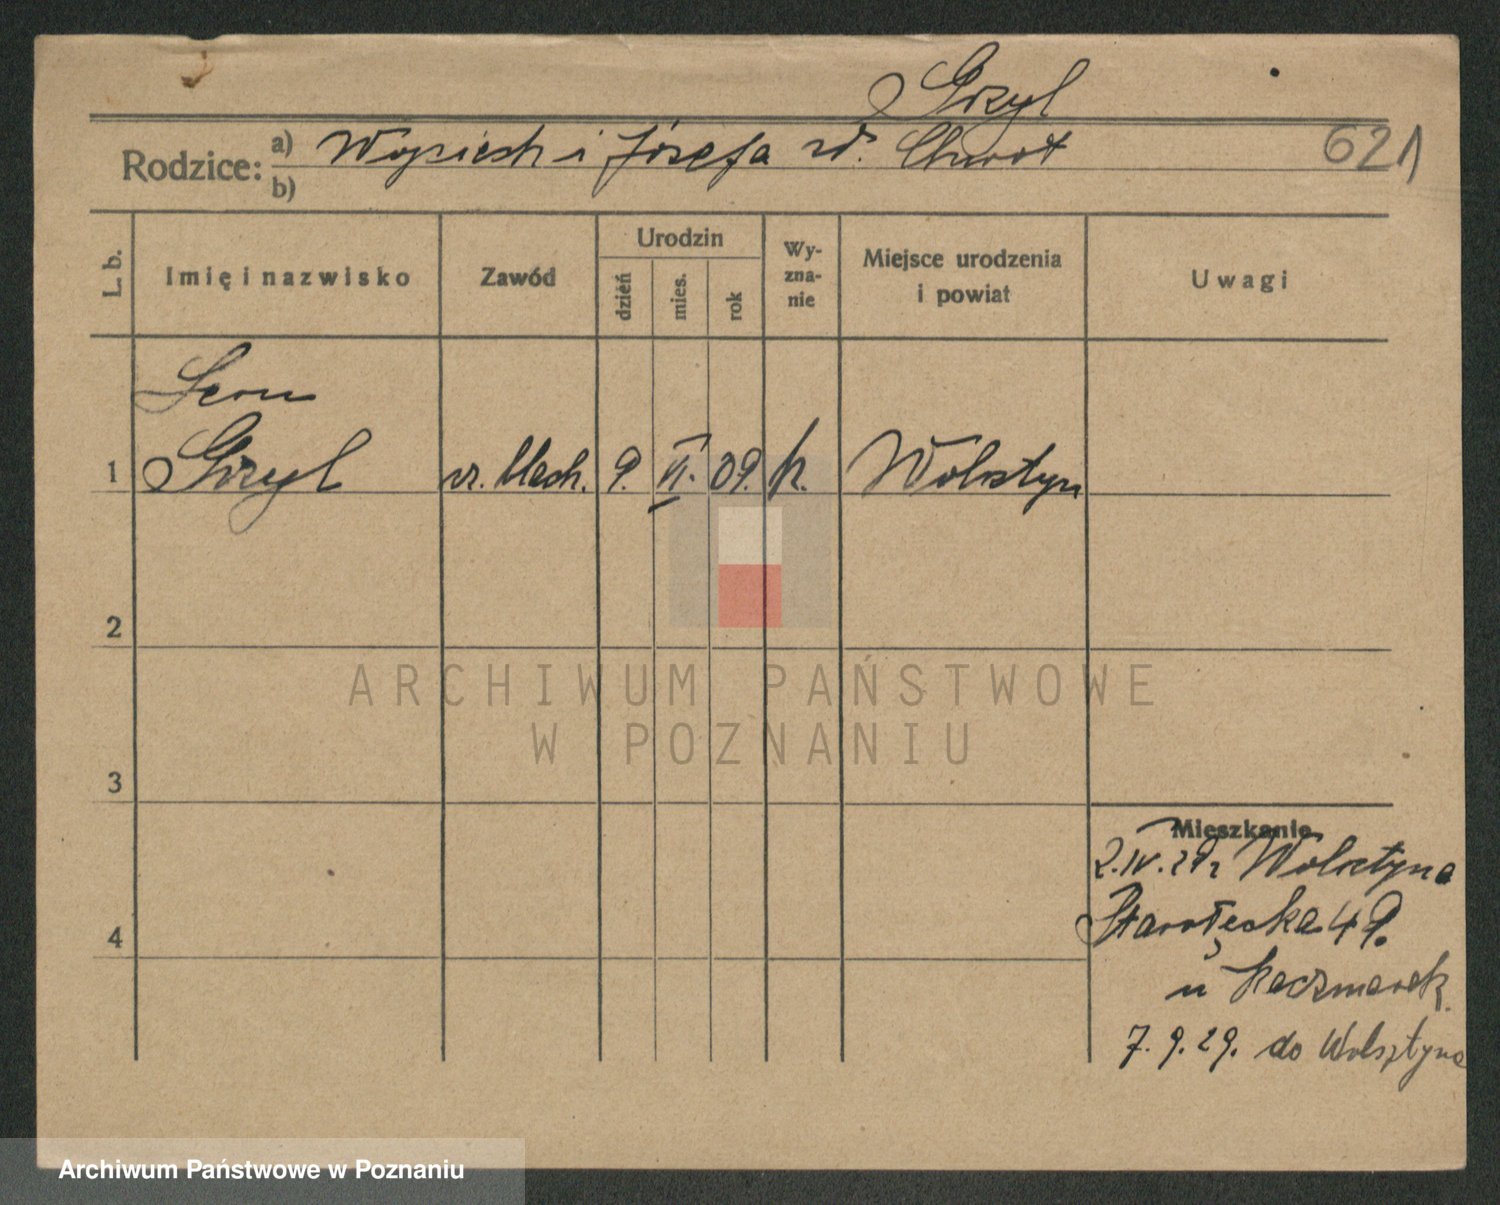 Grzyl
Rodzice: a) Wojciech i Józefa zd. Chwat
b)
621
L. b.
Imię i nazwisko
Zawód
Urodzin
dzień
mies.
rok
Wy-
zna-
nie
Miejsce urodzenia
i powiat
Uwagi
Leon
1 Grzyl cz. blach. 9. VI. 09. k. Wolsztyn
2
3
4
Mieszkanie
2.IV.29 z Wolsztyna
Starołęcka 49.
u Kaczmarek.
7.9.29. do Wolsztyna
ARCHIWUM PAŃSTWOWE
W POZNANIU
Archiwum Państwowe w Poznaniu